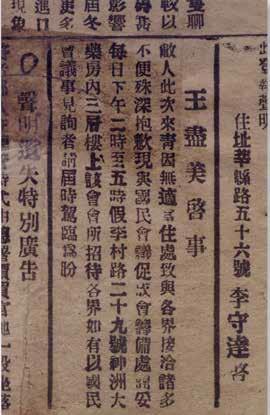 住址華縣路五十六號 李守達啓
王盡美啓事
敝人此次來青因無適當住處致與各界接洽諸多
不便殊深抱歉現與國民會議促成會籌備處商安
每日下午二時至五時假李村路二十九號神洲大
藥房內三層樓上該會會所招待各界如有以國民
會議事見詢者請屆時駕臨為盼
○聲明遺失特別廣告
較以
影響
屆冬
更多
進口
現象